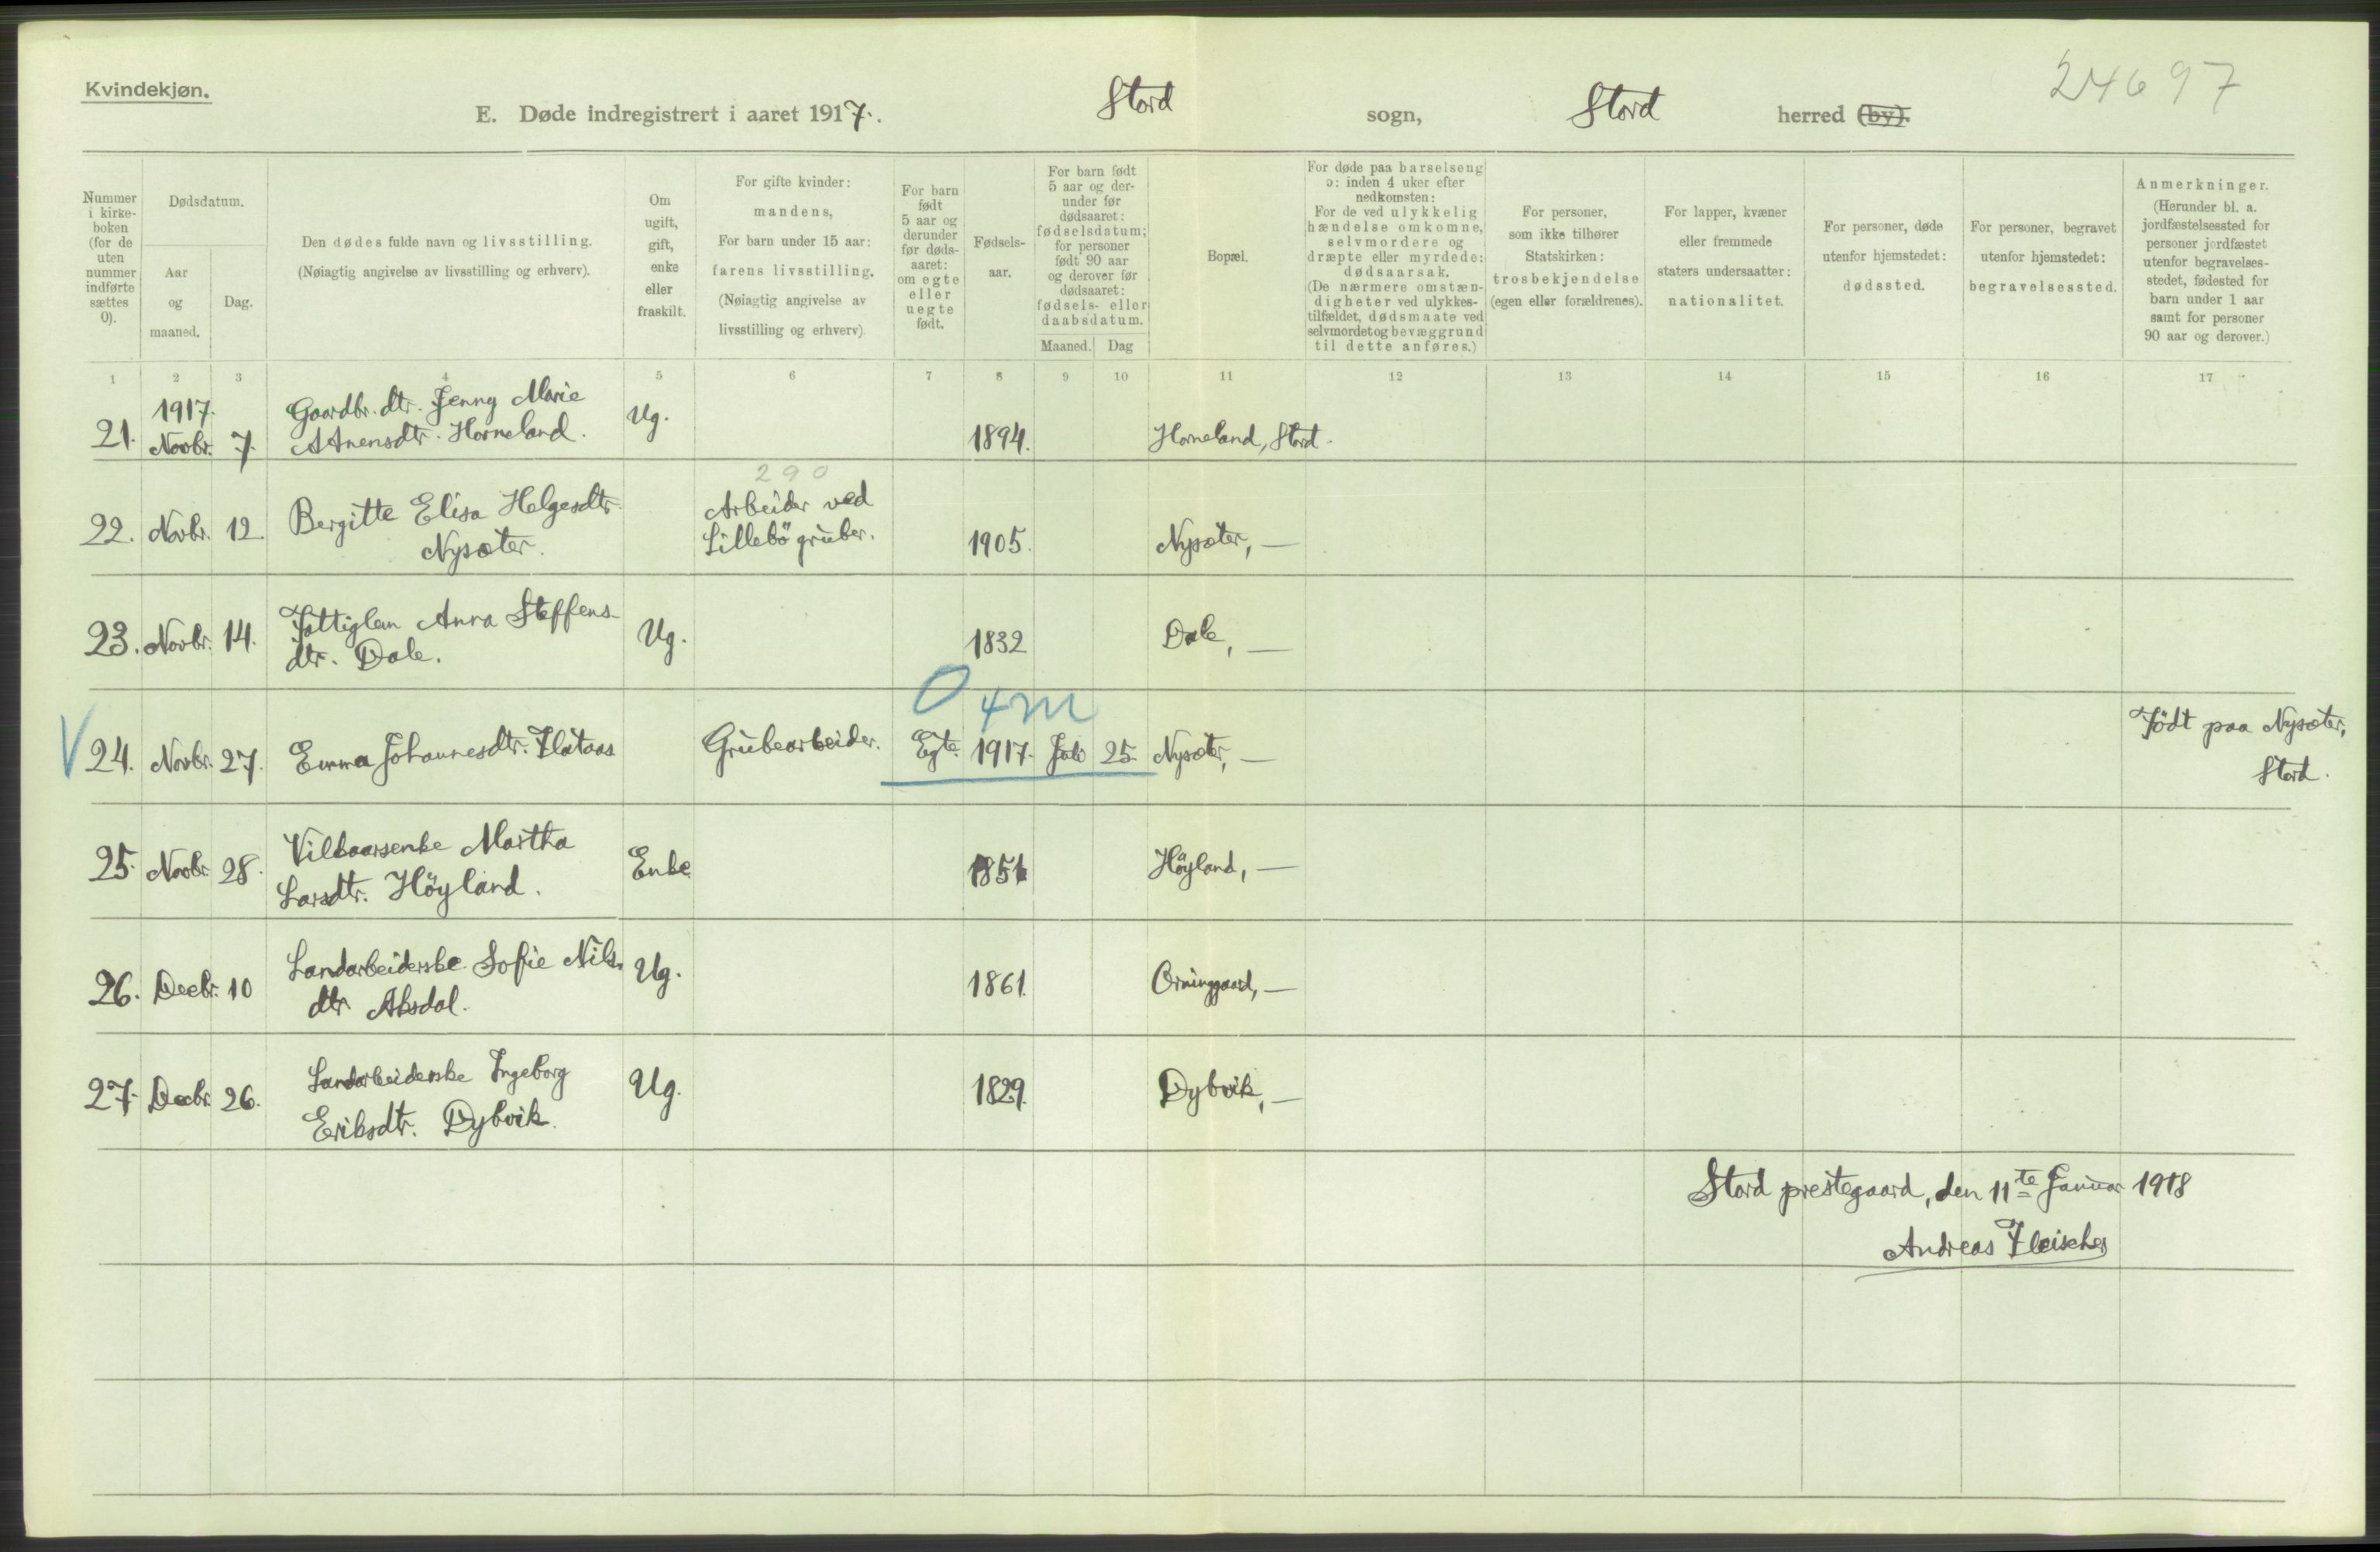 Kvindekjøn.
E. Døde indregistrert i aaret 1917. Stord sogn, Stord herred (by).
24697
Nummer i kirke-boken (for de uten nummer indførte sættes 0).
Dødsdatum.
Aar og maaned.
Dag.
Den dødes fulde navn og livsstilling.
(Nøiagtig angivelse av livsstilling og erhverv).
Om ugift, gift, enke eller fraskilt.
For gifte kvinder: mandens,
For barn under 15 aar: farens livsstilling.
(Nøiagtig angivelse av livsstilling og erhverv).
For barn født 5 aar og derunder før døds-aaret: om egte eller uegte født.
Fødsels-aar.
For barn født 5 aar og der-under før dødsaaret: fødselsdatum; for personer født 90 aar og derover før dødsaaret: fødsels- eller daabsdatum.
Maaned. Dag
Bopæl.
For døde paa barselseng ɔ: inden 4 uker efter nedkomsten:
For de ved ulykkelig hændelse omkomne, selvmordere og dræpte eller myrdede: dødsaarsak.
(De nærmere omstæn-digheter ved ulykkes-tilfældet, dødsmaate ved selvmordet og bevæggrund til dette anføres.)
For personer, som ikke tilhører Statskirken: trosbekjendelse (egen eller forældrenes).
For lapper, kvæner eller fremmede staters undersaatter: nationalitet.
For personer, døde utenfor hjemstedet: dødssted.
For personer, begravet utenfor hjemstedet: begravelsessted.
Anmerkninger.
(Herunder bl. a. jordfæstelsessted for personer jordfæstet utenfor begravelses-stedet, fødested for barn under 1 aar samt for personer 90 aar og derover.)
1 2 3 4 5 6 7 8 9 10 11 12 13 14 15 16 17
1917. Gaardbr. dtr. Jenny Marie
21. Novbr. 7. Horneland. Ug. 1894. Horneland, Stord.
290
22. Novbr. 12. Bergitte Elisa Helgesdtr. Arbeider ved
Nysæter. Lillebö gruber. 1905. Nysæter, —
23. Novbr. 14. Fattiglem Anna Steffens-
dtr. Dale. Ug. 1832 Dale, —
0 4 m
V 24. Novbr. 27. Emma Johannesdtr. Flataas Grubearbeider. Egte. 1917. Juli 25. Nysæter, — Födt paa Nysæter,
Stord.
25. Novbr. 28. Vilkaarsenke Martha
Larsdtr. Höyland. Enke 1851 Höyland, —
26. Decbr. 10 Landarbeiderske Sofie Nils-
dtr. Aksdal. Ug. 1861. Orninggaard, —
27. Decbr. 26. Landarbeiderske Ingeborg
Eriksdtr. Dybvik. Ug. 1829. Dybvik, —
Stord prestegaard, den 11te Januar 1918
Andreas Fleischer